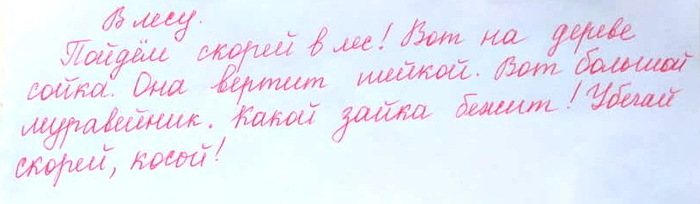 В лесу.
Пойдём скорей в лес! Вот на дереве
сойка. Она вертит шейкой. Вот большой
муравейник. Какой зайка бежит! Убегай
скорей, косой!